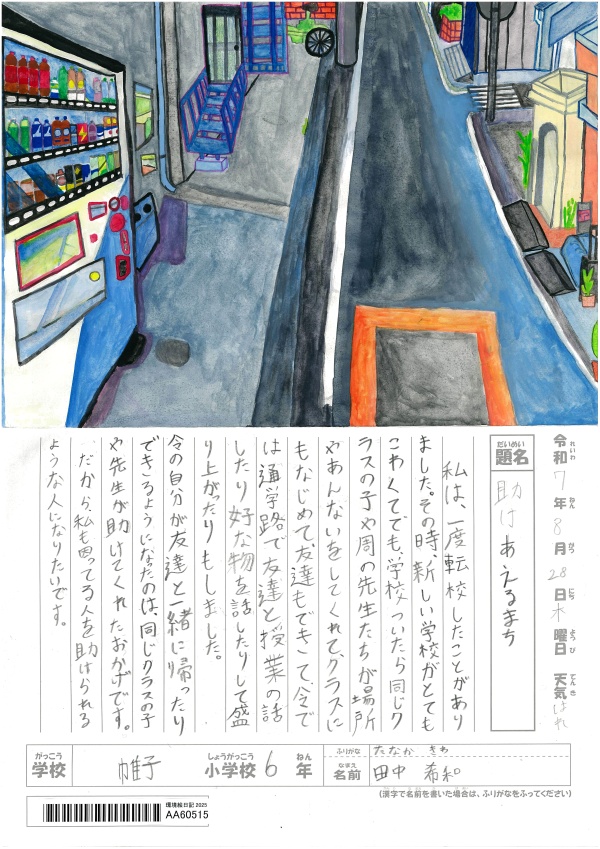 令和7年8月28日木曜日 天気はれ
題名 助けあえるまち
私は、一度転校したことがあり
ました。その時、新しい学校がとても
こわくてでも、学校ついたら同じク
ラスの子や周の先生たちが場所
やあんないをしてくれて、クラスに
もなじめて、友達もできて、今で
は通学路で友達と授業の話
したり好な物を話したりして盛
り上がったりもしました。
今の自分が友達と一緒に帰ったり
できるようになったのは、同じクラスの子
や先生が助けてくれたおかげです。
だから、私も困ってる人を助けられる
ような人になりたいです。
がっこう しょうがっこう ねん
学校 帷子 小学校 6 年
ふりがな たなか きわ
なまえ
名前 田中 希和
(漢字で名前を書いた場合は、ふりがなをふってください)
環境絵日記 2025
AA60515